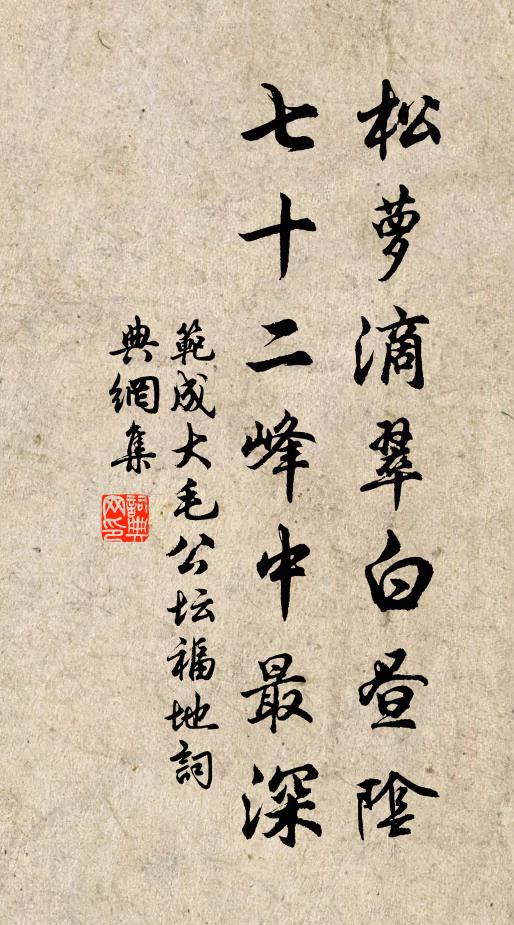 松萝滴翠白昼陰
七十二峰中最深
範成大毛公坛福地詞
典網集
詞典网印